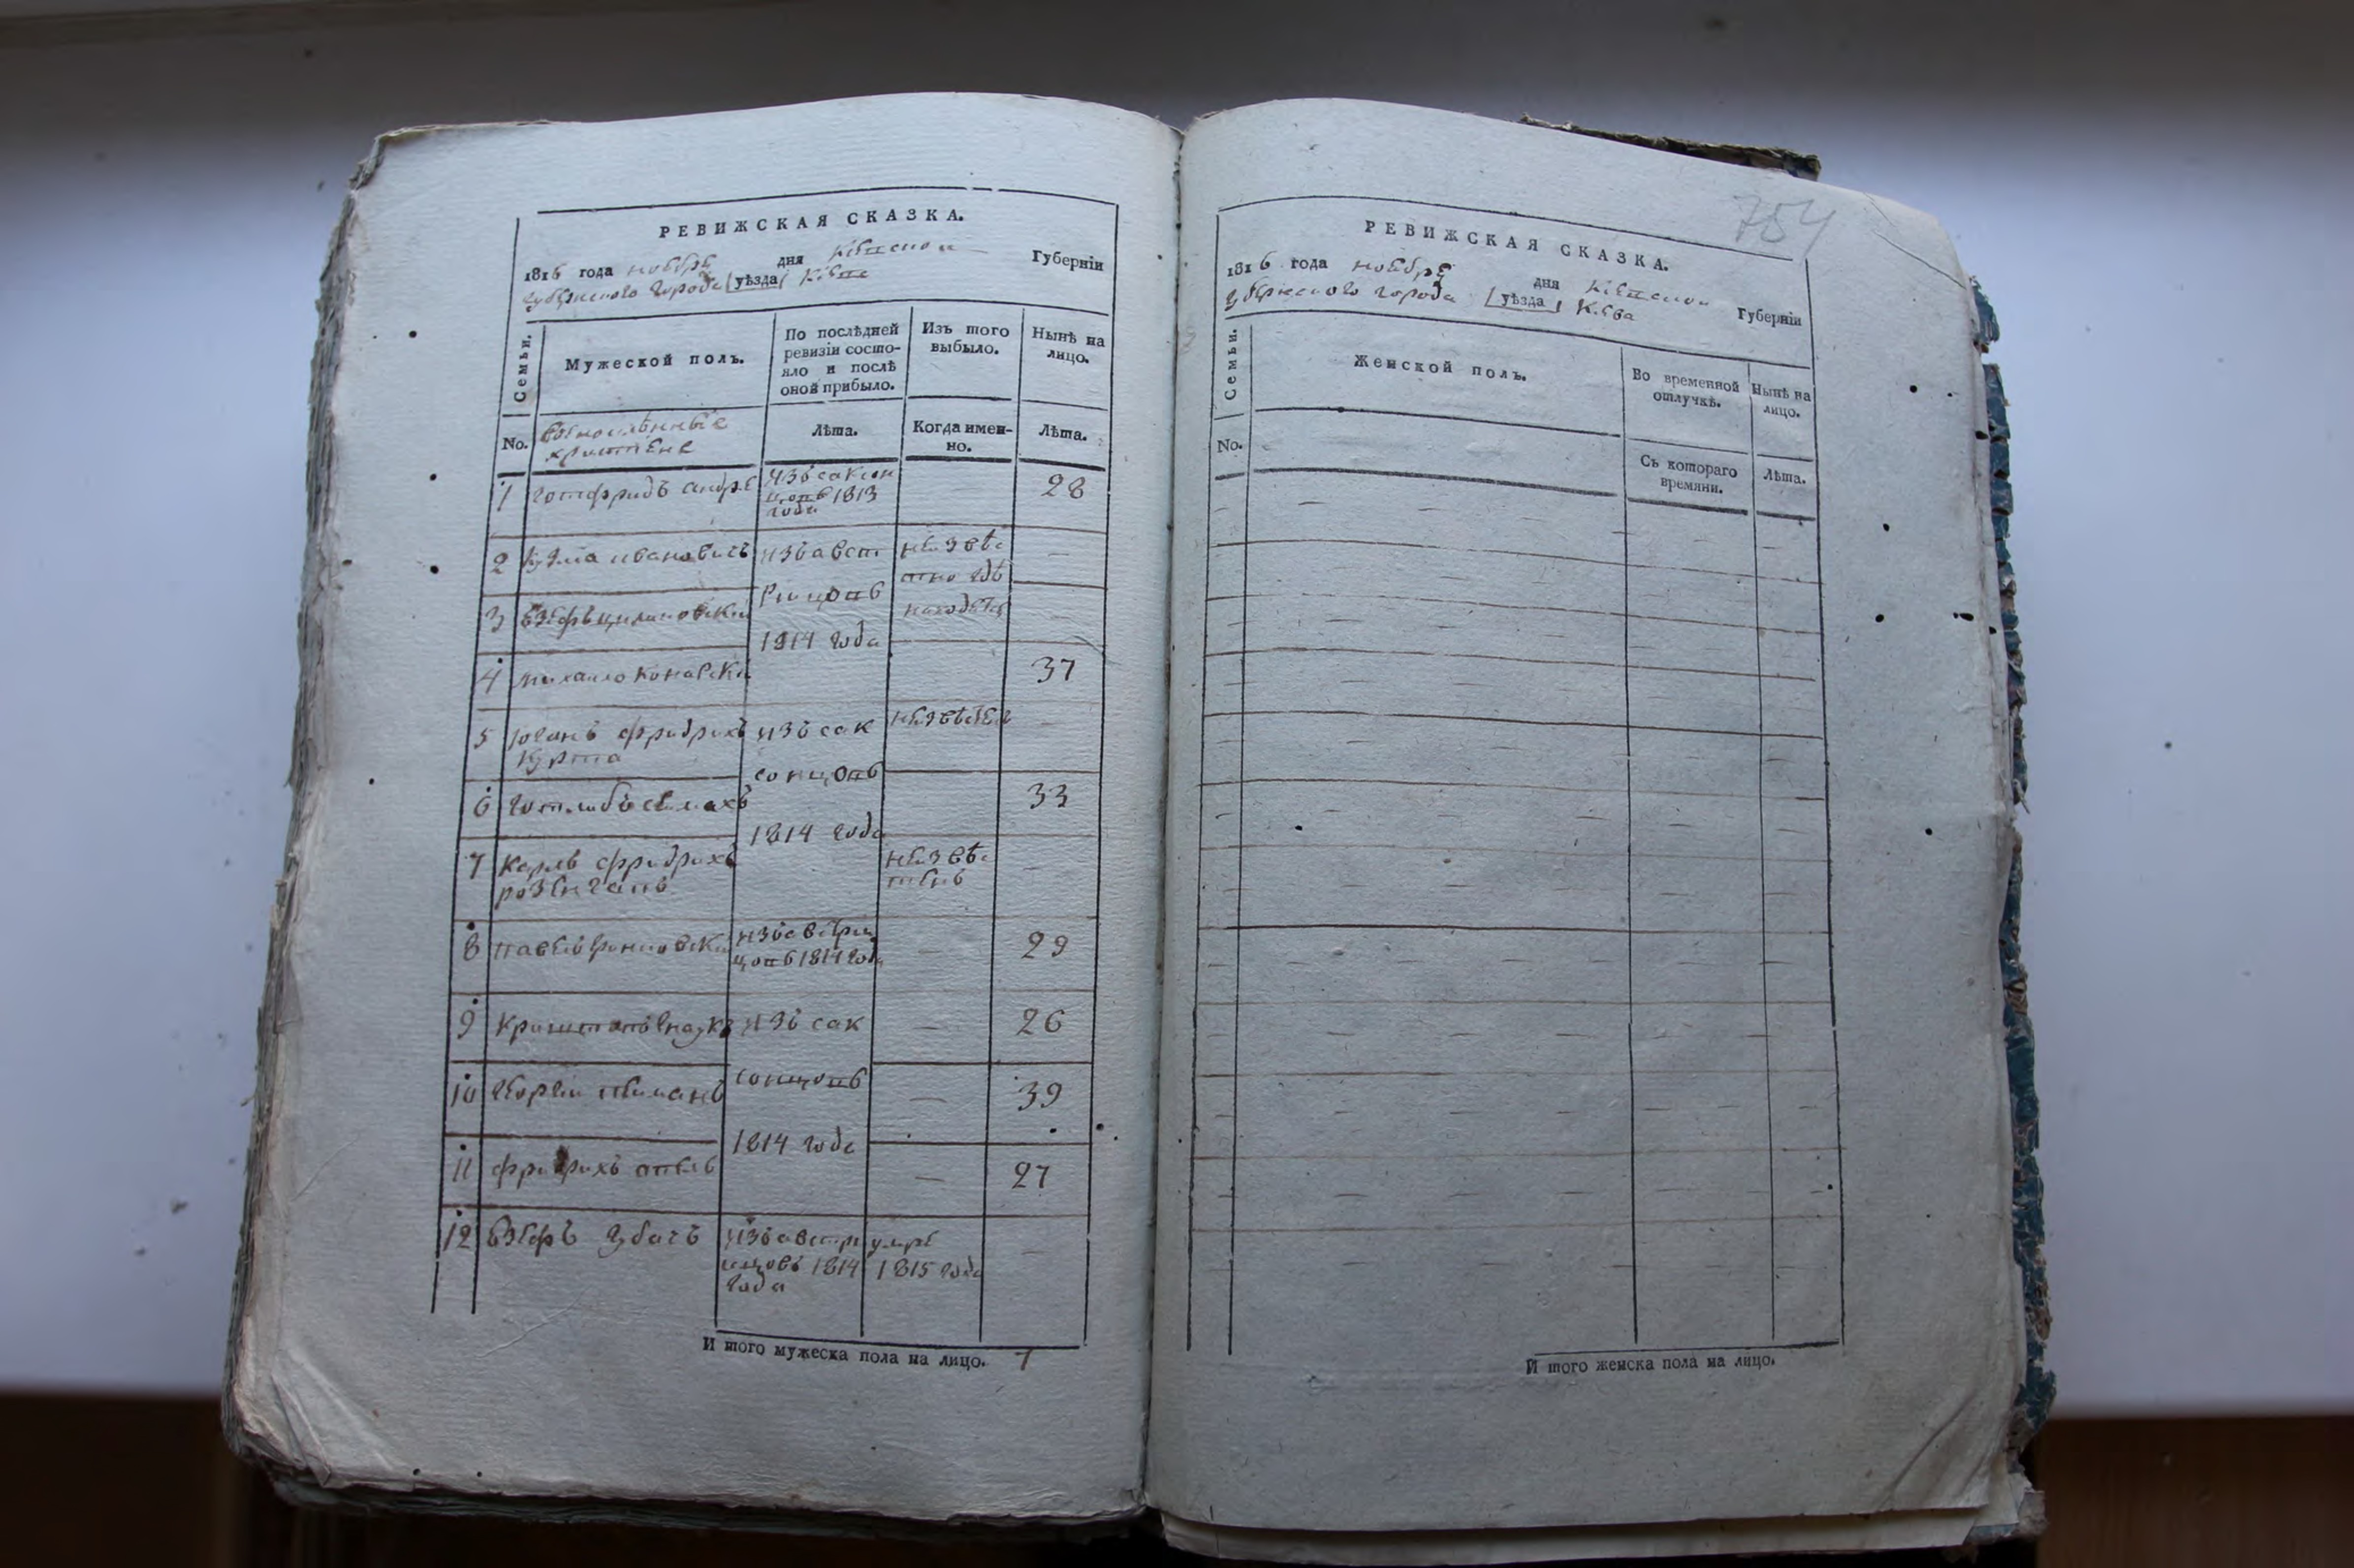 РЕВИЖСКАЯ СКАЗКА.
1816 года ноября дня Кіевской Губерніи
Губернского города (уѣзда) Кіева
Семьи.
Мужеской полъ.
По послѣдней ревизіи состо-
яло и послѣ
оной прибыло.
Изъ того
выбыло.
Нынѣ на
лицо.
No.
Военноплѣнные
Лѣта.
Когда имен-
но.
Лѣта.
1 Готфридъ Андре изъ саксонцовъ 1813 года 28
2 Кузма Ивановичъ изъ австрицовъ 1814 года неизвѣстно гдѣ находятся —
3 Езефъ —
4 Михайло 37
5 Юганъ Фридрихъ Курта изъ саксонцовъ 1814 года неизвѣстенъ —
6 Готлибъ 33
7 Карлъ Фридрихъ неизвѣстенъ —
8 Павелъ изъ австрицовъ 1814 года — 29
9 изъ саксонцовъ 1814 года — 26
10 Георги — 39
11 Фридрихъ — 27
12 Езефъ изъ австриицовъ 1814 года умре 1815 года —
И того мужеска пола на лицо. 7
754
РЕВИЖСКАЯ СКАЗКА.
1816 года ноября дня Кіевской Губерніи
Губернского города (уѣзда) Кіева
Семьи.
Женской полъ.
Во временной
отлучкѣ.
Нынѣ на
лицо.
No.
Съ котораго
времяни.
Лѣта.
И того женска пола на лицо.